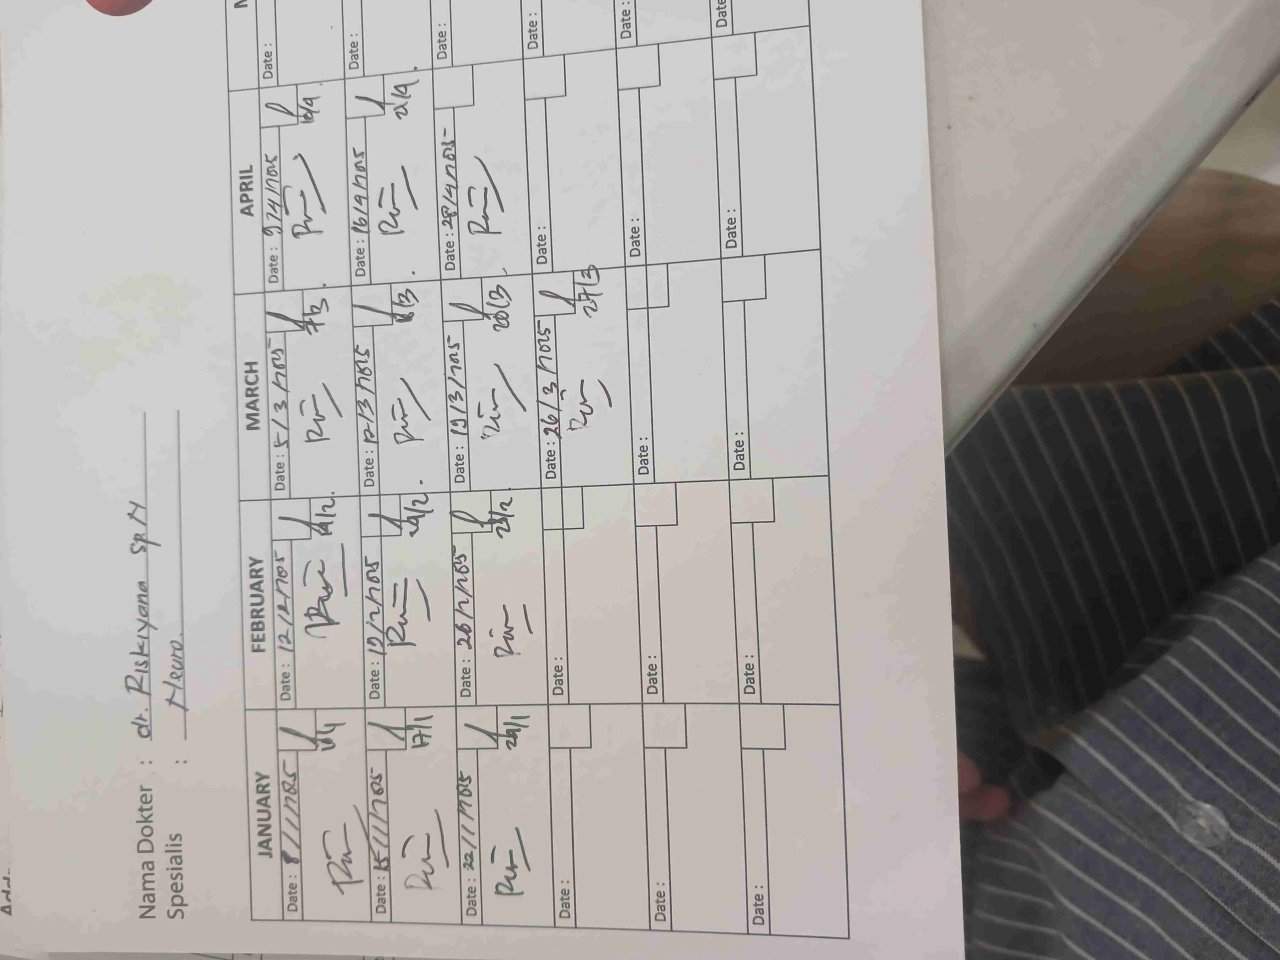 Nama Dokter : dr. Riskiyana Sp N
Spesialis : Neuro.
JANUARY FEBRUARY MARCH APRIL
Date : 8/1/2025 Date : 12/2/2025 Date : 5/3/2025 Date : 9/4/2025 Date :
14/2. 7/3 .
Date : 15/1/2025 Date : 19/2/2025 Date : 12/3/2025 Date : 16/4/2025 Date :
17/1 24/2 . 21/4 .
Date : 22/1/2025 Date : 26/2/2025 Date : 19/3/2025 Date : 28/4/2025 Date :
24/1 28/2 . 20/3 .
Date : Date : Date : 26/3/2025 Date : Date :
27/3
Date : Date : Date : Date : Date :
Date : Date : Date : Date : Date